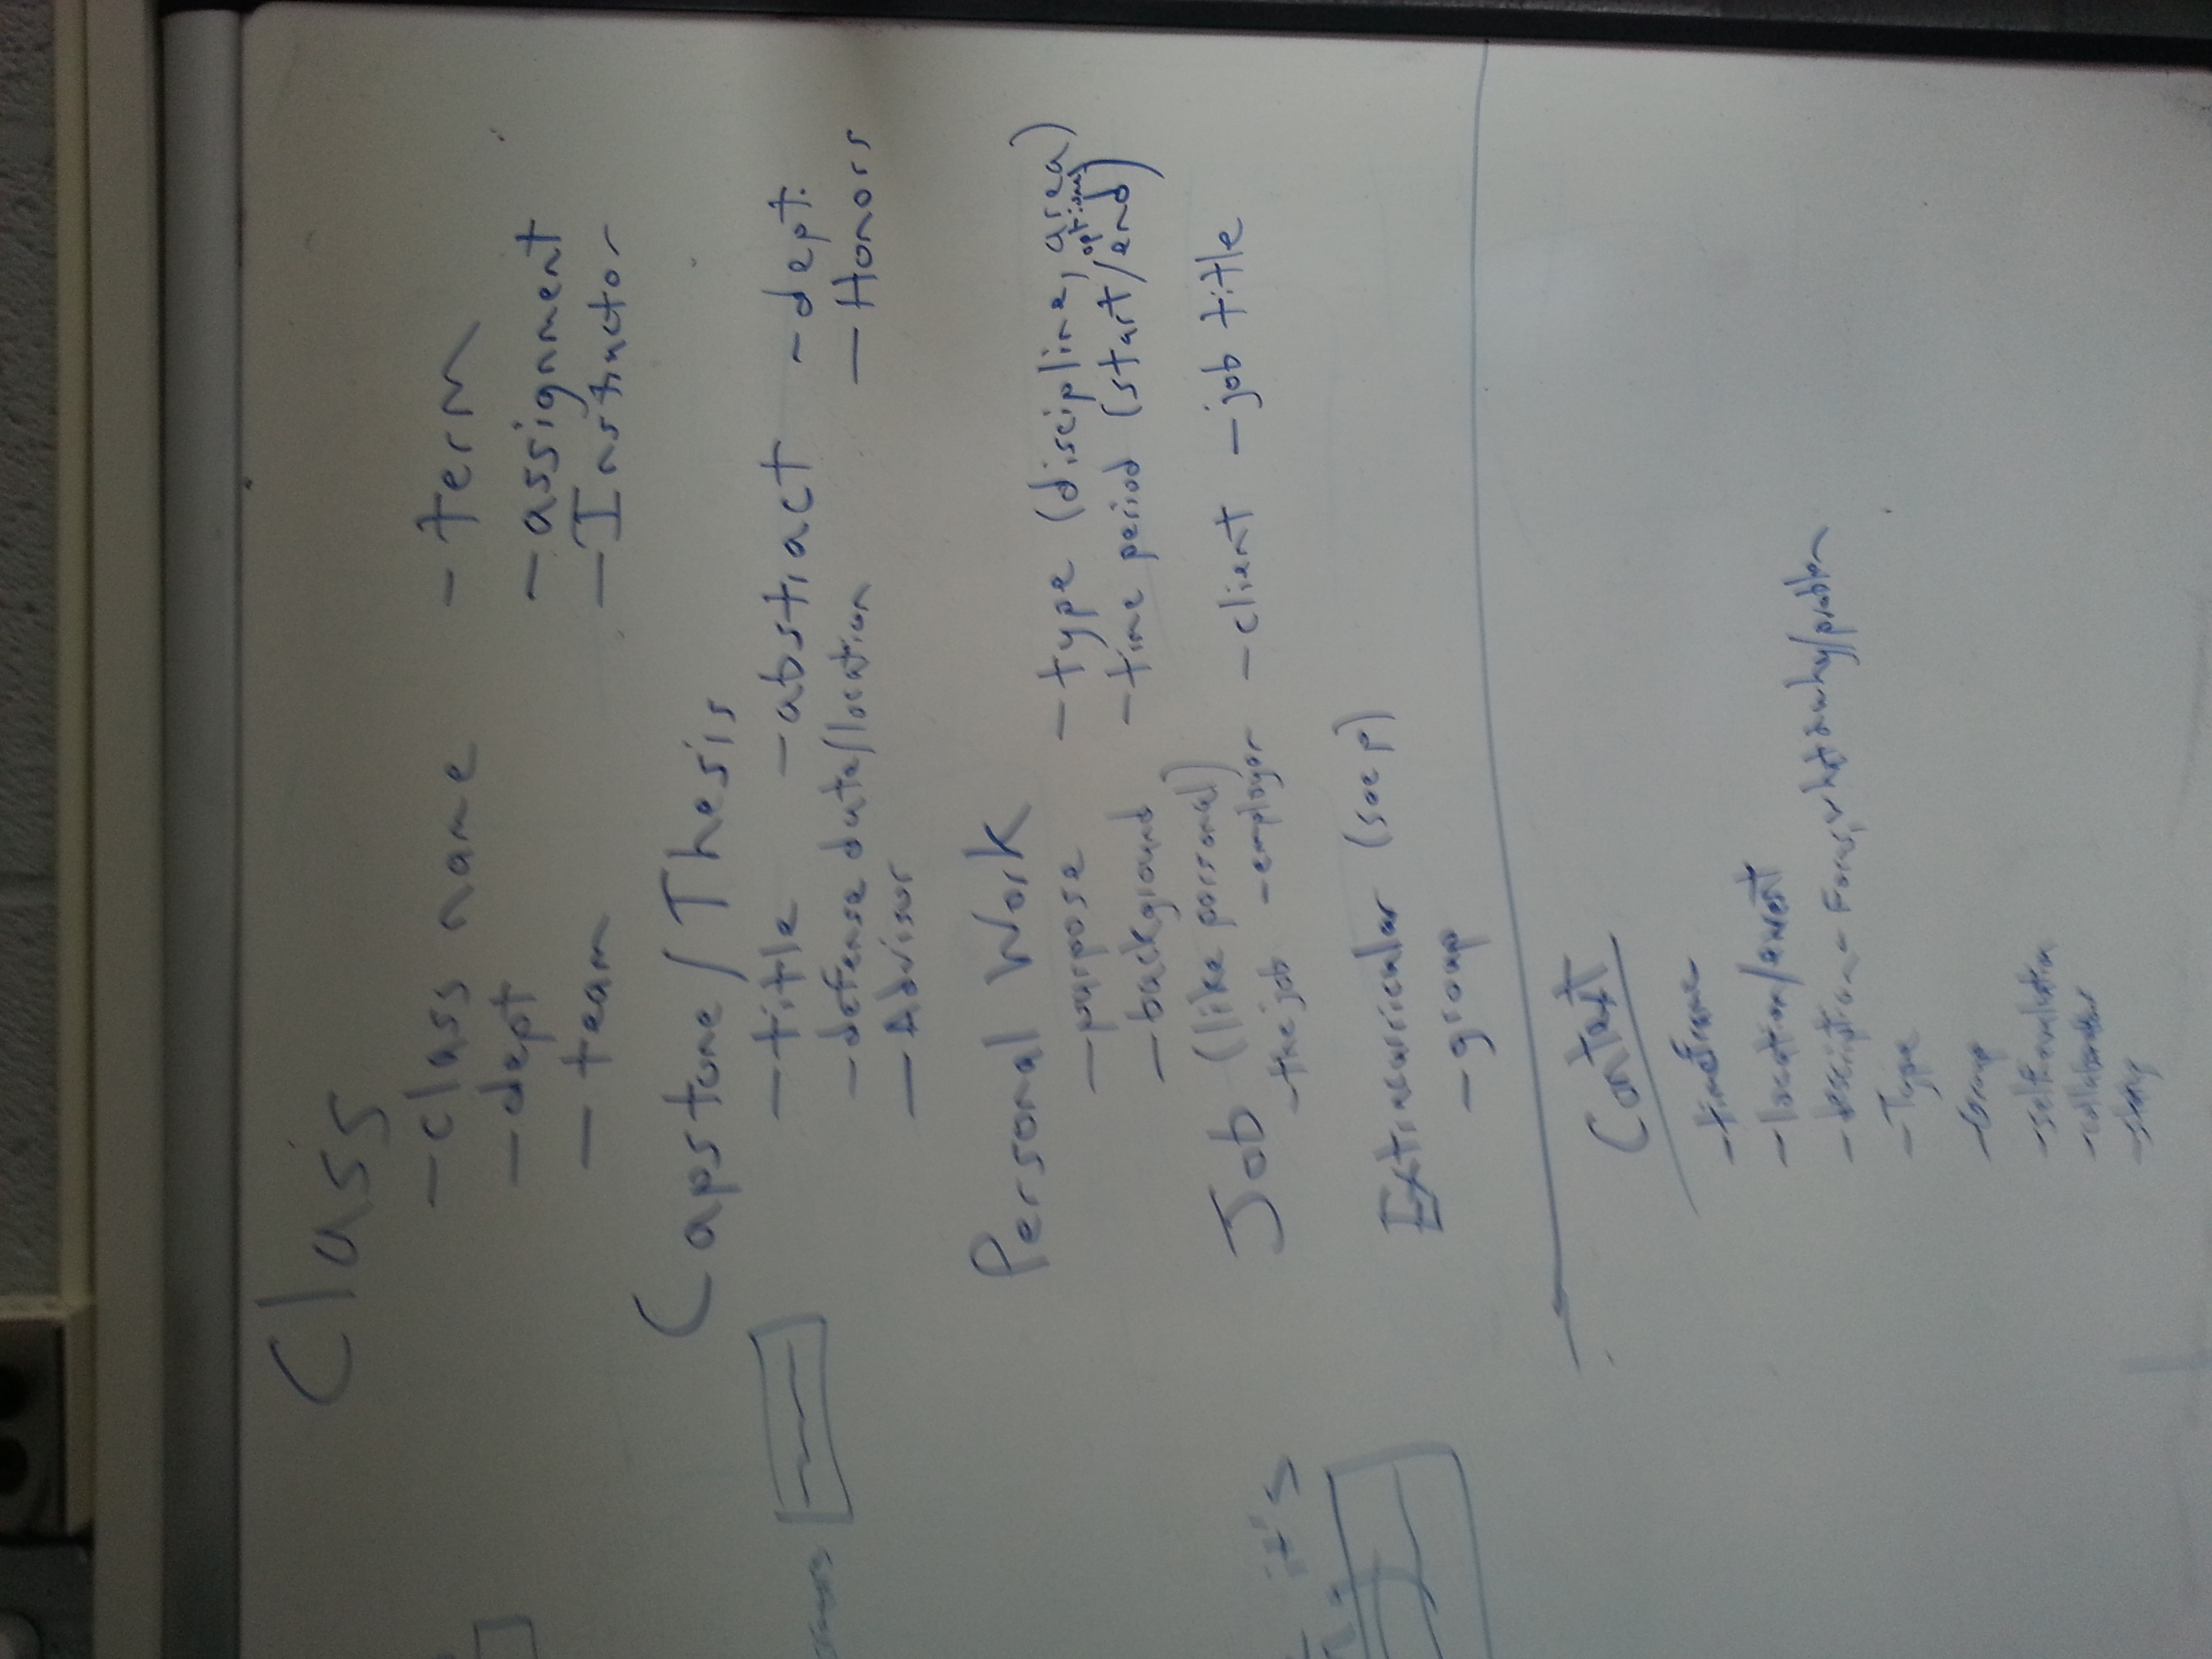 Class
- class name - term
- dept - assignment
- team - Instructor
Capstone / Thesis
- title - abstract - dept.
- defense date/location - Honors
- Advisor
Personal Work
- purpose - type (discipline, area)
optional
- background - time period (start/end)
Job (like personal)
- the job - employer - client - job title
it's
Extracurricular (see p)
- group
Context
- timeframe
- location/event
- description - Focus, what & why/problem
- Type
- Group
- self evaluation